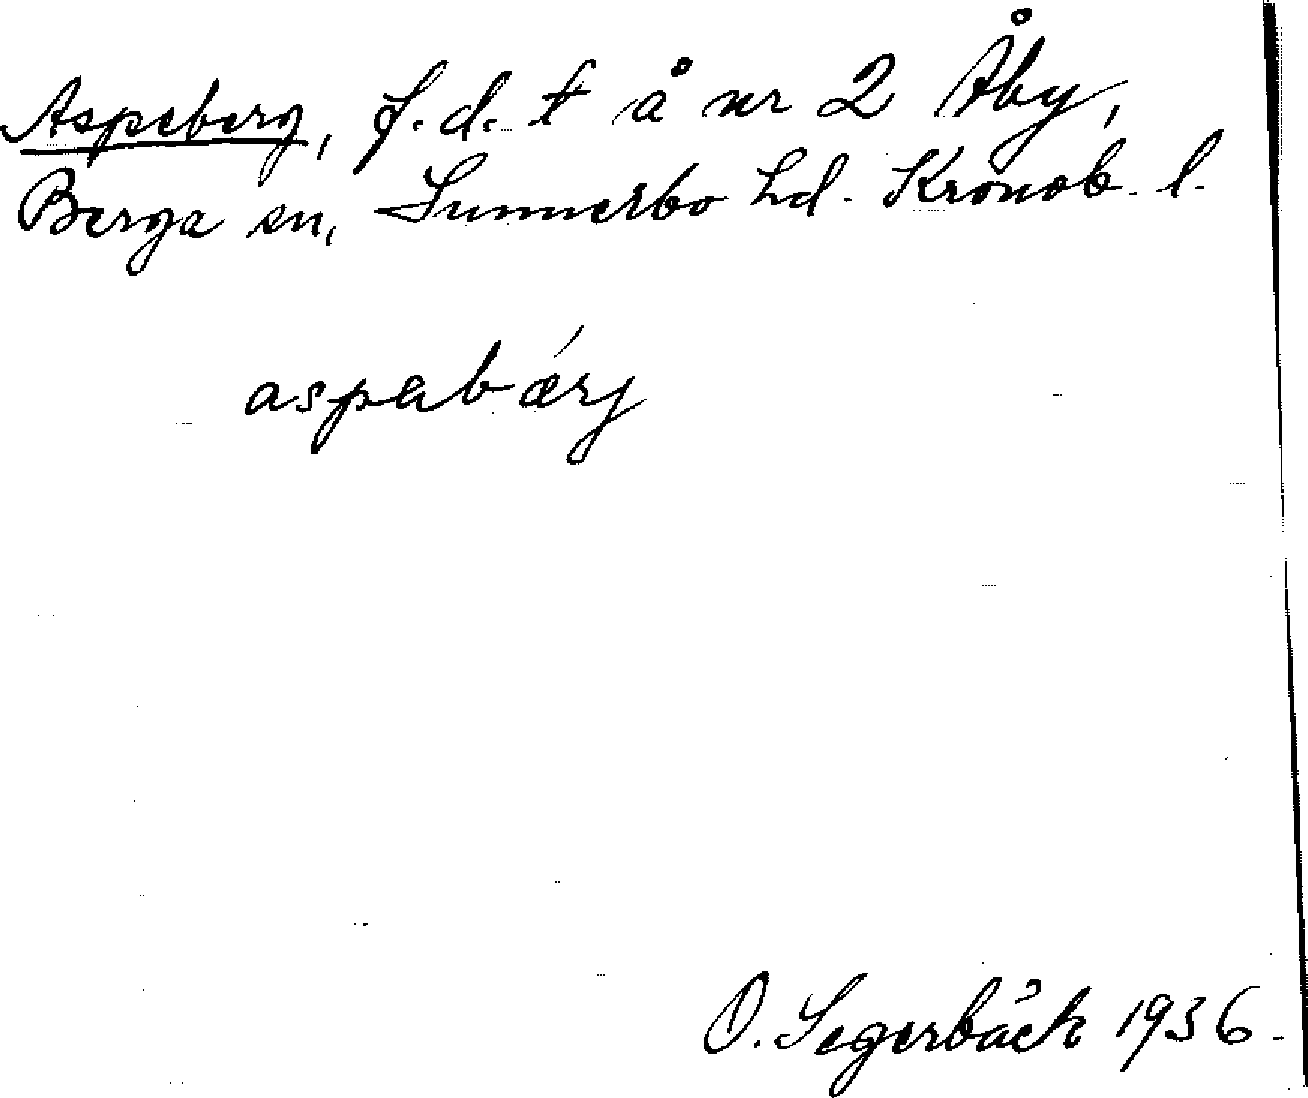 Aspeberg, f.d. t å nr 2 Åby,
Berga sn, Sunnerbo hd. Kronob. l.
aspabǽrj
O. Segerbäck 1936.